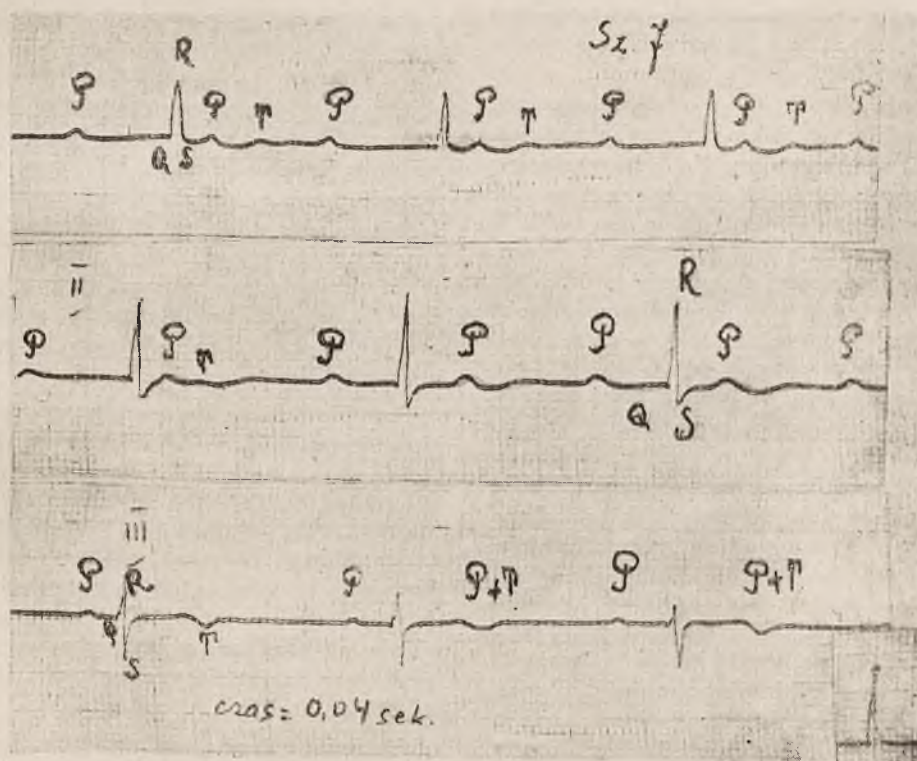 Sz. 7
R
P P T P P T P P T P
Q S
II
R
P P T P P P P P
Q S
III
P R P P+T P P+T
Q T
S
czas = 0,04 sek.